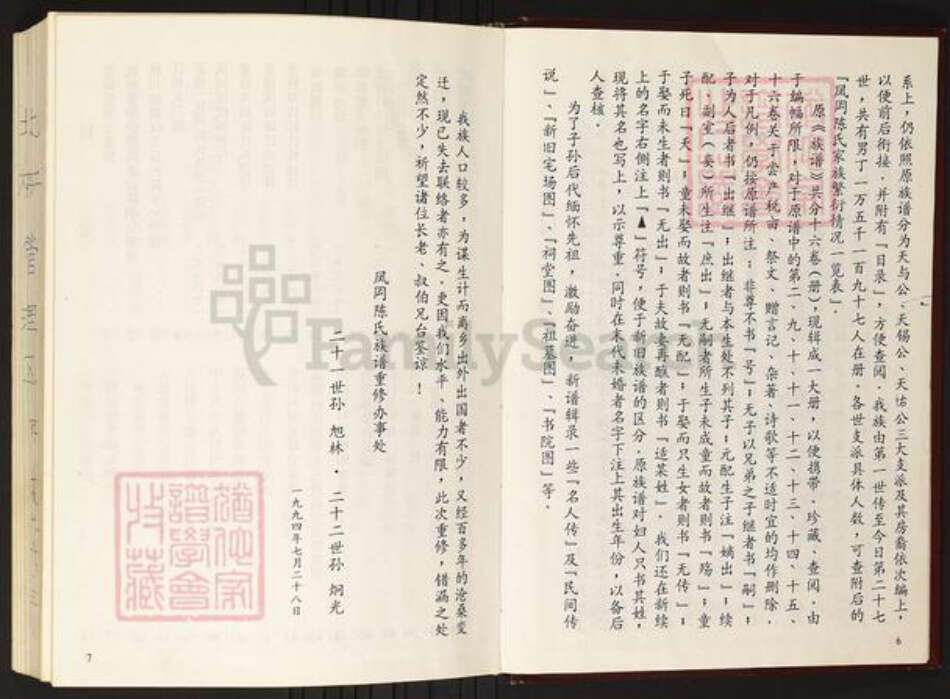 系上，仍依照原族谱分为天与公、天锡公、天佑公三大支派及其房裔依次编上，
以便前后衔接．并附有「目录」，方便查阅．我族由第一世传至今日第二十七
世，共有男丁一万五千一百九十七人在册．各世支派具体人数，可查附后的
「凤冈陈氏家族繁衍情况一览表」．
原《族谱》共分十六卷（册），现辑成一大册，以便携带．珍藏、查阅．由
于编幅所限，对于原谱中的第二、九、十、十一、十二、十三、十四、十五、
十六卷关于尝产税亩、祭文、赠言记、杂著、诗歌等不适时宜的均作删除．
对于凡例，仍按原谱所注：非尊不书「号」；无子以兄弟之子继者书「嗣」；
子为人后者书「出继」；出继者与本生处不列其子；元配生子注「嫡出」；续
配、副室（妾）所生注「庶出」；无嗣者所生子未成童而故者则书「殇」；童
子死曰「夭」；童未娶而故者则书「无配」；于娶而只生女者则书「无传」；
于娶而未生者则书「无出」；于夫故妻再醮者则书「适某姓」．我们还在新续
上的名字右侧注上「▲」符号，便于新旧族谱的区分．原族谱对妇人只书其姓，
现将其名也写上，以示尊重．同时在末代未婚者名字下注上其出生年份，以备后
人查核．
为了子孙后代缅怀先祖，激励奋进，新谱辑录一些「名人传」及「民间传
说」、「新旧宅场图」、「祠堂图」、「祖墓图」、「书院图」等．
6
我族人口较多，为谋生计而离乡出外出国者不少，又经百多年的沧桑变
迁，现已失去联络者亦有之．更因我们水平、能力有限，此次重修，错漏之处
定然不少，祈望诸位长老、叔伯兄台鉴谅！
凤冈陈氏族谱重修办事处
二十一世孙 旭林．二十二世孙 炯光
一九九四年七月二十八日
7
FamilySearch